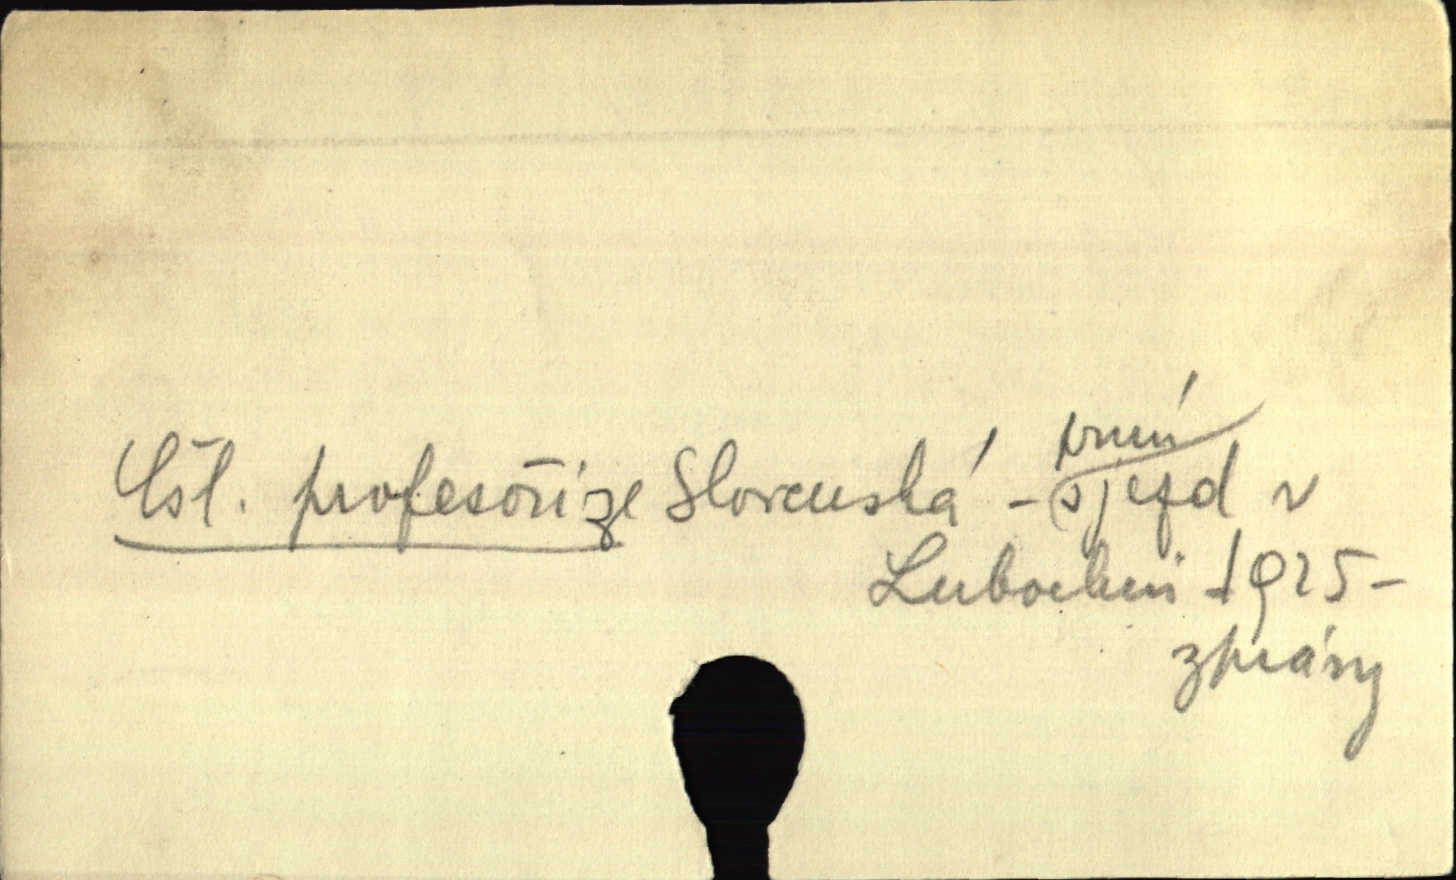 Čsl. profesoři ze Slovenská - první sjezd v
Lubochni 1925 -
zprávy